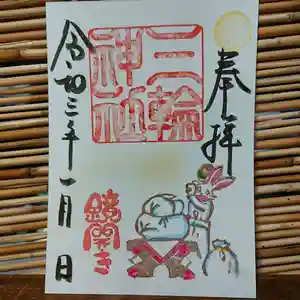 奉拝
三輪
神社
令和三年一月 日
鏡開き